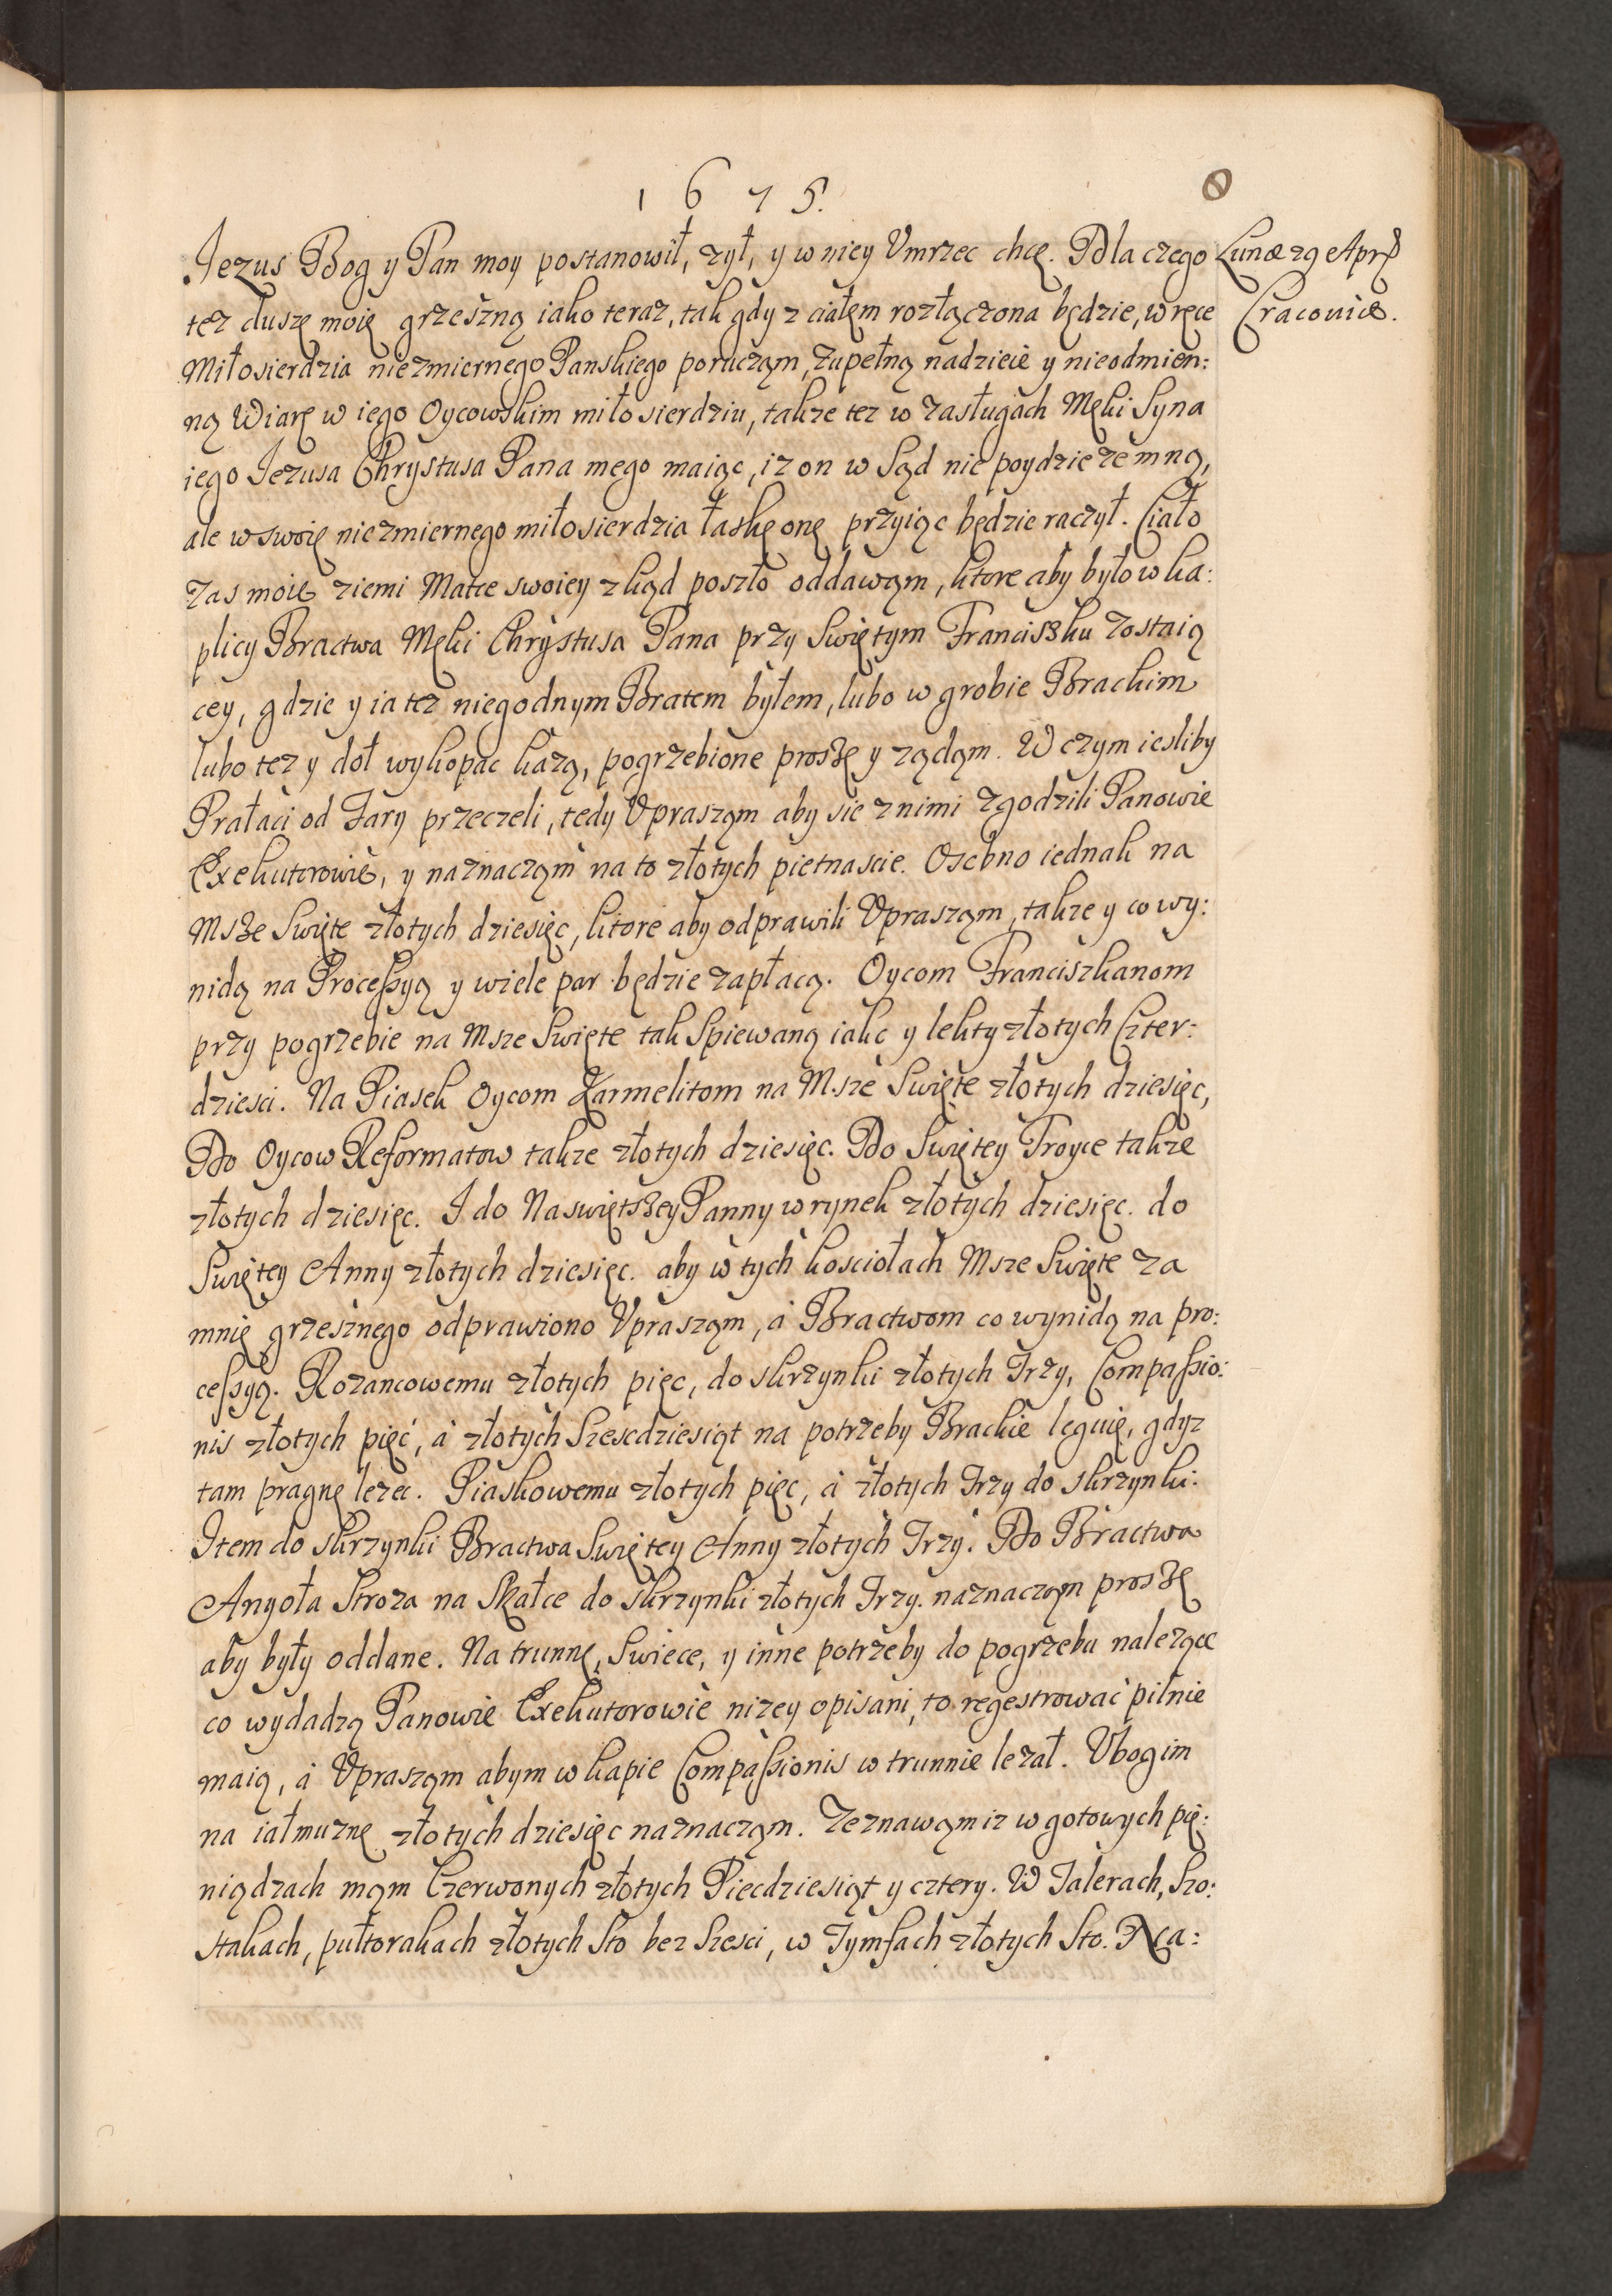 1675.
Jezus Bog y Pan moy postanowił, zył, y w niey Vmrzec chcę. Dla czego
Lunæ 29 Apr
tez duszę moię grzeszną iako teraz, tak gdy z ciałem rozłączona będzie, w ręce
Cracoviæ.
Miłosierdzia niezmiernego Panskiego porucząm, zupełną nadzieie y nieodmien:
ną Wiarę w iego Oycowskim miłosierdziu, takze tez w zasługach Męki Syna
iego Jezusa Chrystusa Pana mego maiąc, iz on w Sąd nie poydzie zemną,
ale w swoię niezmiernego miłosierdzia łaskę onę przyiąc będzie raczył. Ciało
zas moie ziemi Matce swoiey zkąd poszło oddawąm, ktore aby było w ka:
plicy Bractwa Męki Chrystusa Pana przy Swiętym Franciszku zostaią
cey, gdzie y ia tez niegodnym Bratem byłem, lubo w grobie Brackim
lubo tez y doł wykopac każą, pogrzebione proszę y ządąm. W czym iesliby
Prałaci od Fary przeczeli, tedy Vprasząm aby sie z nimi zgodzili Panowie
Exekutorowie, y naznacząm na to złotych pietnascie. Osobno iednak na
Msze Swięte złotych dziesięc, ktore aby odprawili Vprasząm, takze y co wy:
nidą na Processyą y wiele par będzie zapłacą. Oycom Franciszkanom
przy pogrzebie na Msze Swięte tak Spiewaną iako y lekty złotych Czter:
dziesci. Na Piasek Oycom Karmelitom na Msze Swięte złotych dziesięc,
Do Oycow Reformatow takze złotych dziesięc. Do Swiętey Troyce takze
złotych dziesięc. I do Naswiętszey Panny w rynek złotych dziesięc. do
Swiętey Anny złotych dziesięc. aby w tych kosciołach Msze Swięte za
mnię grzesznego odprawiono Vprasząm, à Bractwom co wynidą na pro:
cessyą. Rozancowemu złotych pięc, do skrzynki złotych Trzy, Compassio:
nis złotych pięć, à złotych Szescdziesiąt na potrzeby Brackie leguię, gdyz
tam pragnę lezec. Piaskowemu złotych pięc, à złotych Trzy do skrzynki.
Item do skrzynki Bractwa Swiętey Anny złotych Trzy. Do Bractwa
Anyoła Stroza na Skałce do skrzynki złotych Trzy. naznacząm proszę
aby były oddane. Na trunnę, Swiece, y inne potrzeby do pogrzebu nalezące
co wydadzą Panowie Exekutorowie nizey opisani, to regestrować pilnie
maią, à Vprasząm abym w kapie Compassionis w trunnie lezał. Vbogim
na iałmuznę złotych dziesięc naznacząm. Zeznawąm iz w gotowych pię:
niądzach mąm Czerwonych złotych Piecdziesiąt y cztery. W Talerach, Szo:
stakach, pułtorakach złotych Sto bez Szesci, w Tymfach złotych Sto.